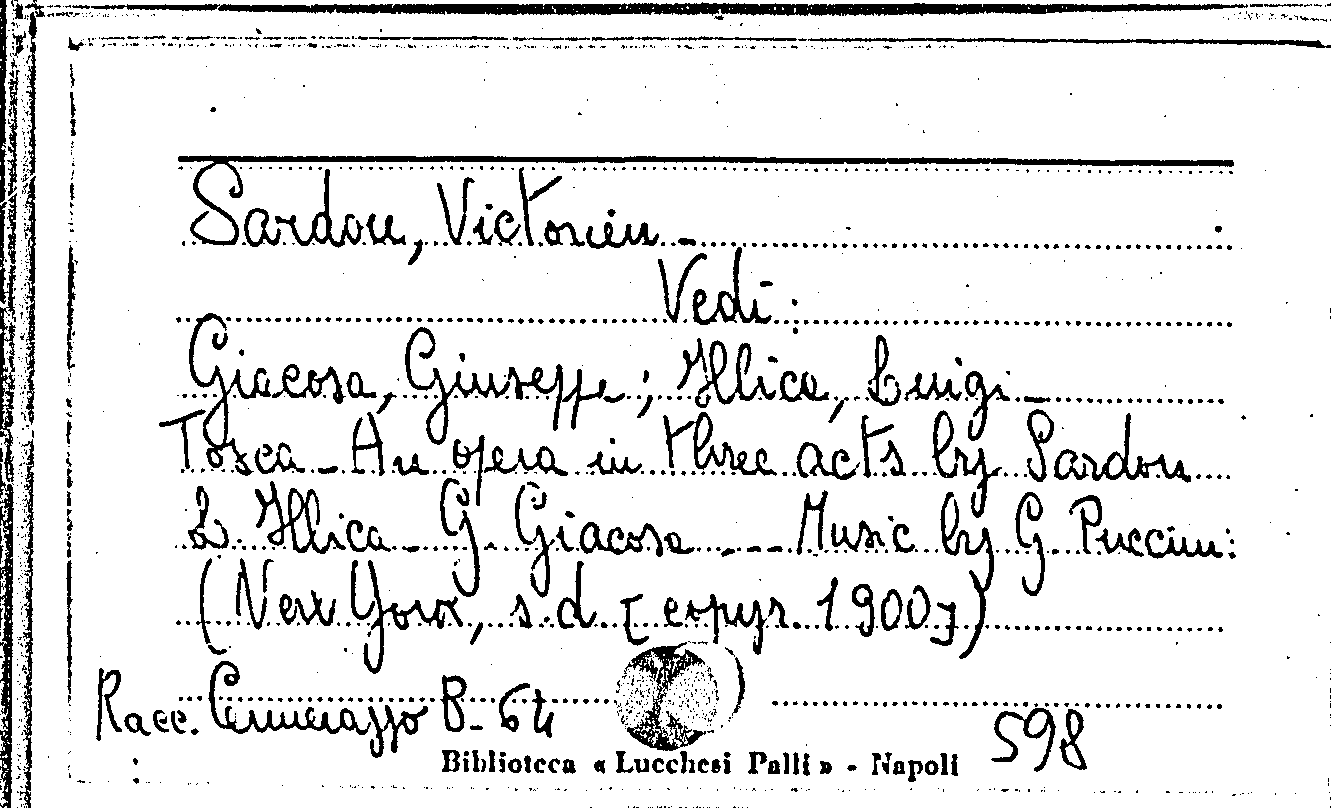 Sardou, Victorien -
Vedi:
Giacosa, Giuseppe; Illica, Luigi -
Tosca - An opera in three acts by Sardou
L. Illica - G. Giacosa --- Music by G. Puccini:
(New York, s.d. [copyr. 1900])
Racc. B-64
598
Biblioteca « Lucchesi Palli » - Napoli